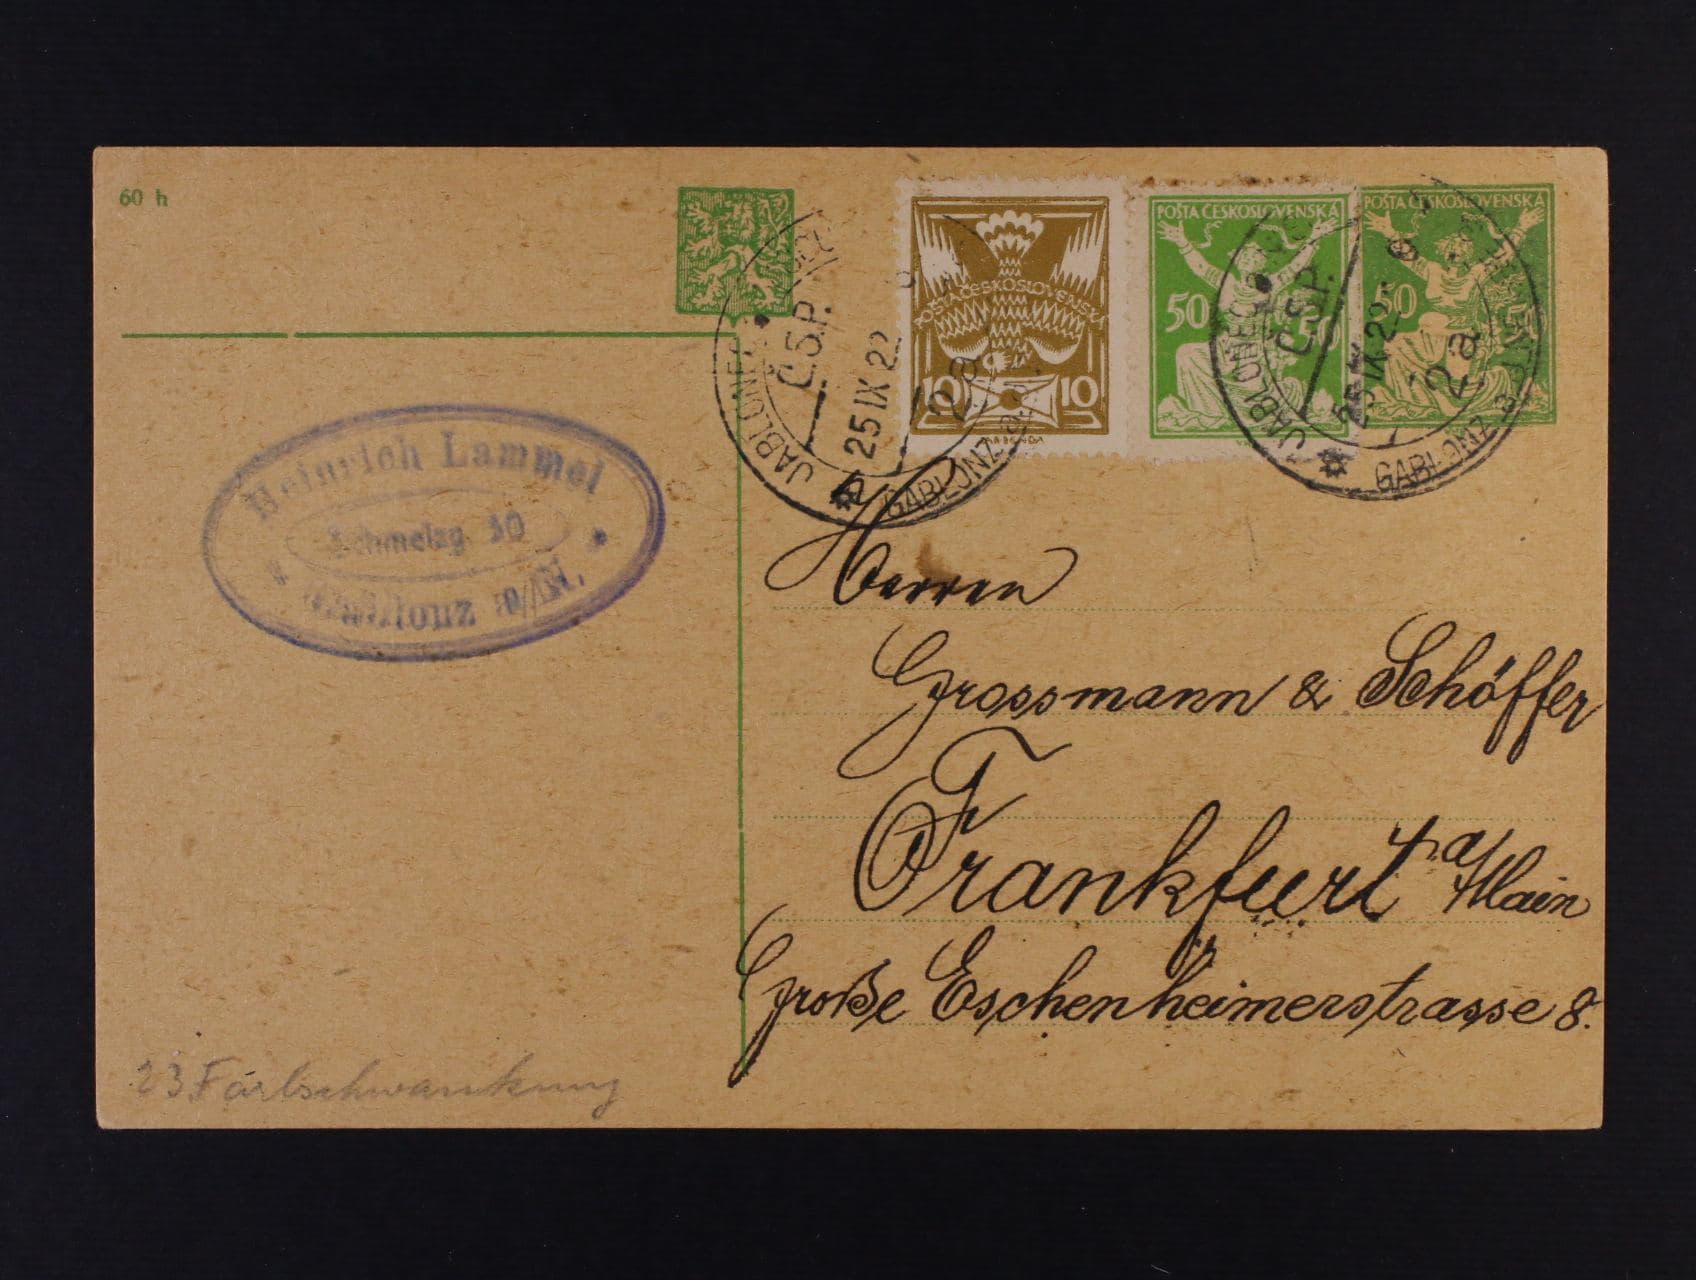 60 h
POŠTA ČESKOSLOVENSKÁ
10 10
POŠTA ČESKOSLOVENSKÁ
50 50
POŠTA ČESKOSLOVENSKÁ
50 50
JABLONEC
Č.S.P.
25 IX 22
2a
GABLONZ a/
JABLONEC
Č.S.P.
25 IX 22
2a
GABLONZ a
Heinrich Lammel
Schmelzg. 30
Gablonz a/N.
Herren
Grossmann & Schöffer
Frankfurt a/Main
Große Eschenheimerstrasse 8.
23 Farbschwankung